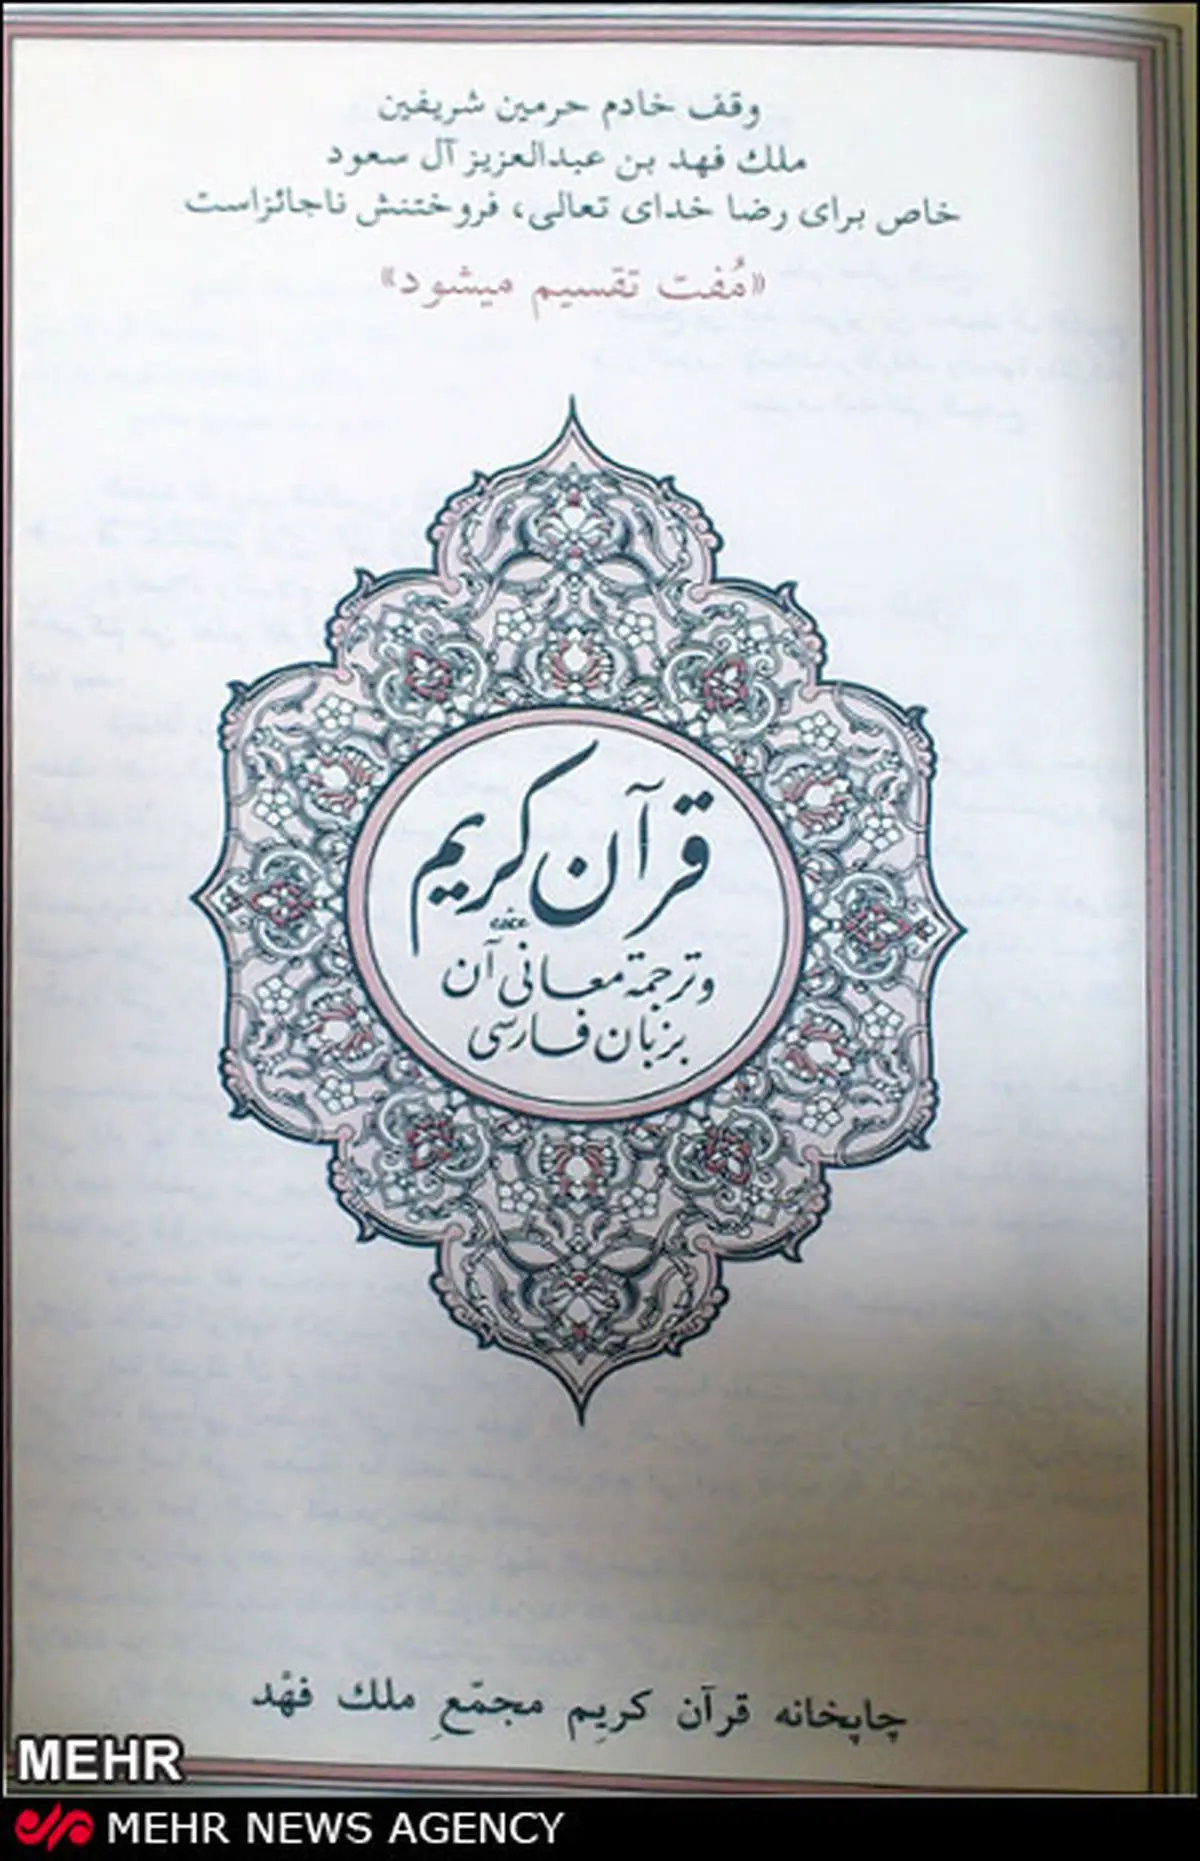 وقف خادم حرمین شریفین
ملك فهد بن عبدالعزیز آل سعود
خاص برای رضا خدای تعالی، فروختنش ناجائزاست
«مُفت تقسیم میشود»
قرآن کریم
و ترجمۀ معانی آن
بزبان فارسی
چاپخانه قرآن کریِم مجمّعِ ملك فهْد
MEHR
MEHR NEWS AGENCY